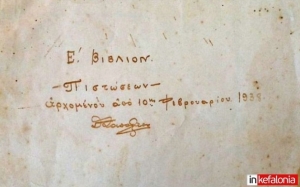 Ε΄ ΒΙΒΛΙΟΝ.
- ΠΙΣΤΩΣΕΩΝ -
ἀρχομένου ἀπό 10ης Φεβρουαρίου
inkefalonia